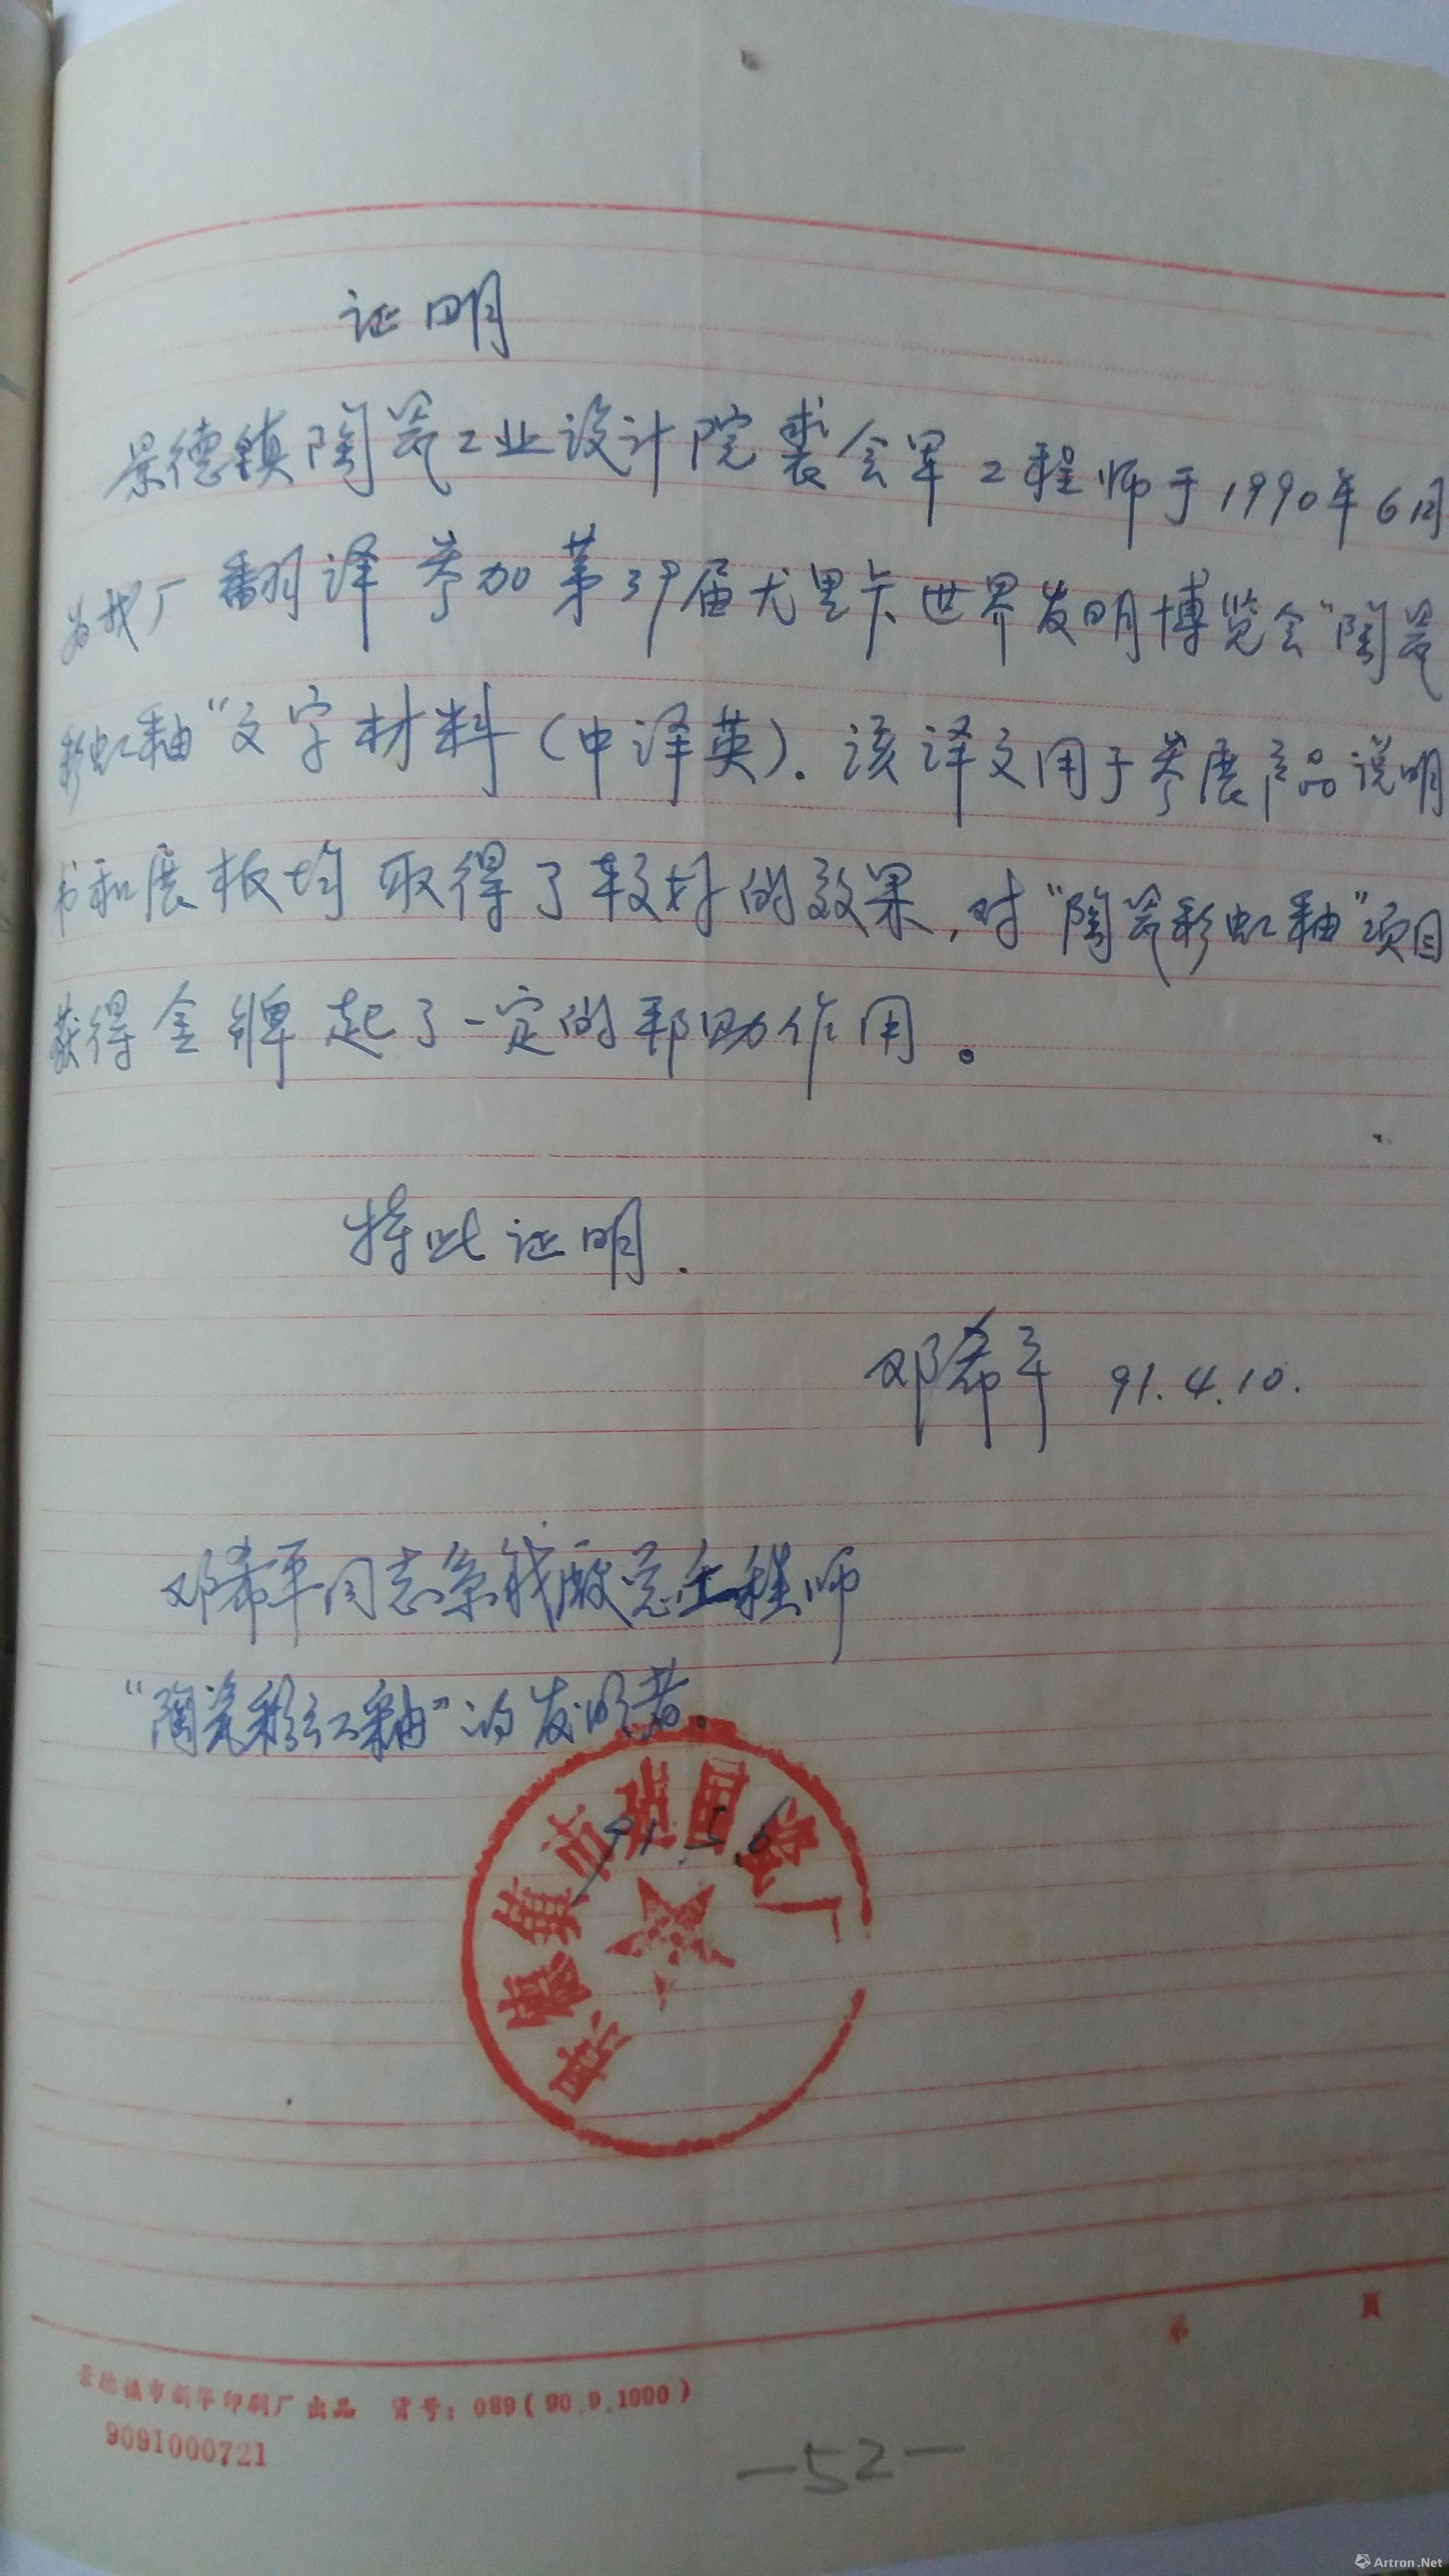 证明
景德镇陶瓷工业设计院裘会军工程师于1990年6月
为我厂翻译参加第39届尤里卡世界发明博览会“陶瓷
彩虹釉”文字材料（中译英）.该译文用于参展产品说明
书和展板均取得了较好的效果,对“陶瓷彩虹釉”项目
获得金牌起了一定的帮助作用。
特此证明.
邓希平 91.4.10.
邓希平同志系我厂总工程师
“陶瓷彩虹釉”的发明者。
91.5.6
景德镇市 瓷厂
第 页
景德镇市新华印刷厂出品 货号：089（90.9.1000）
9091000721
—52—
Artron.Net